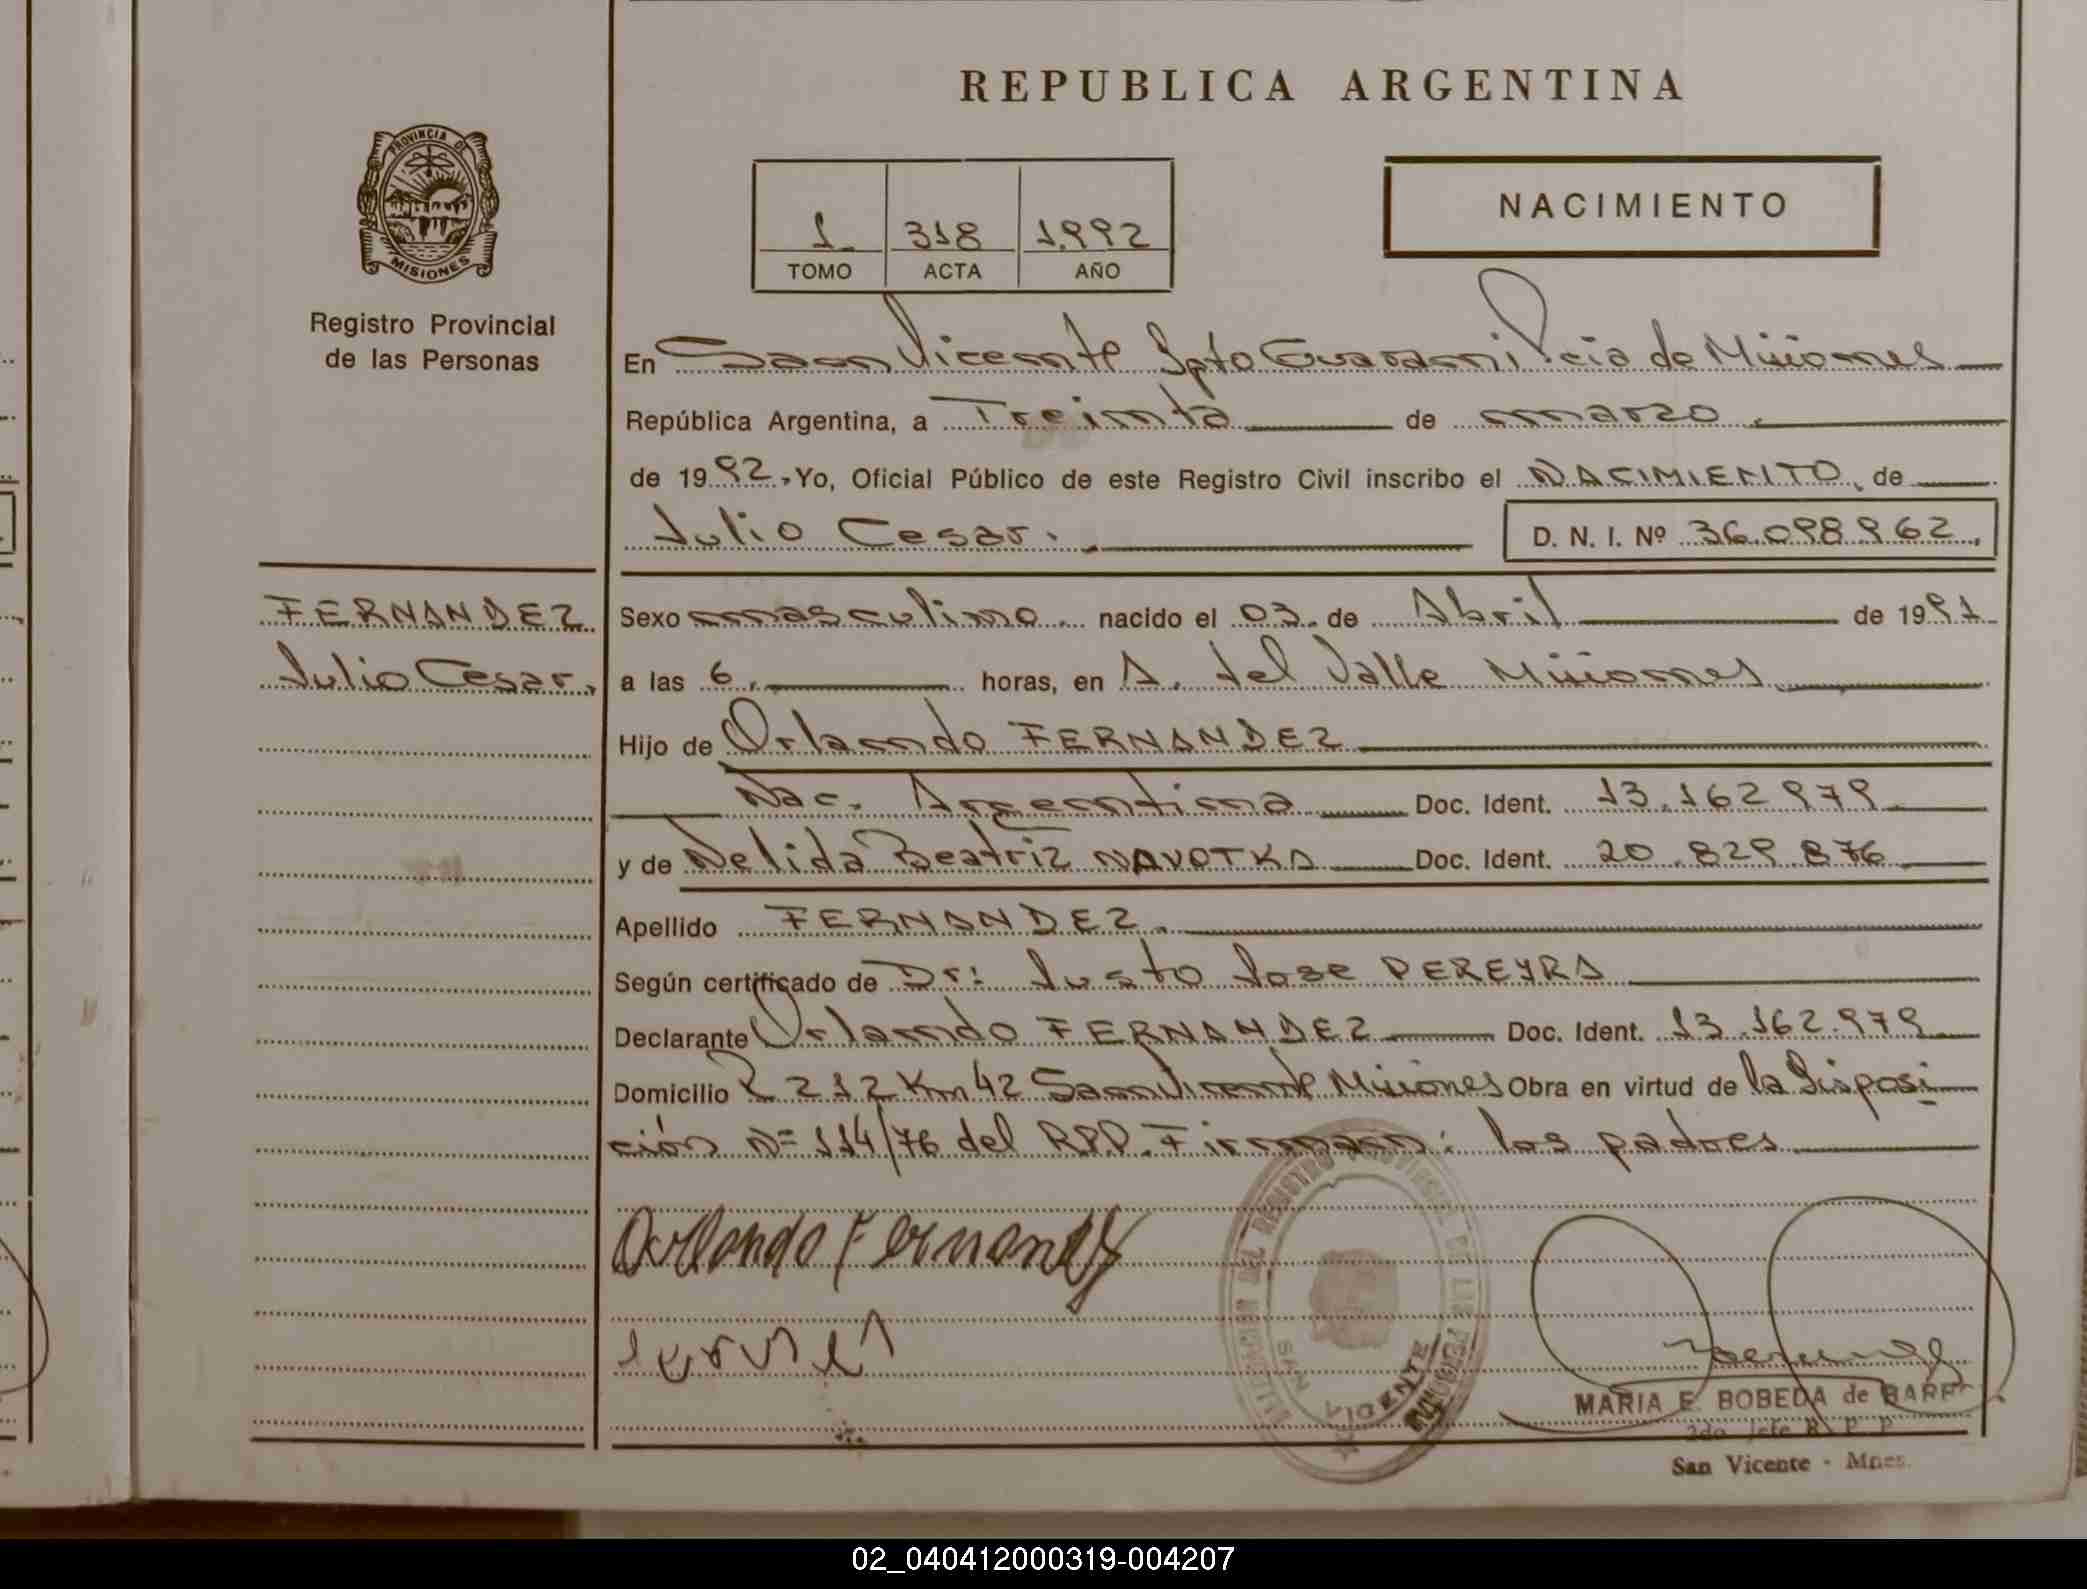 REPUBLICA ARGENTINA
PROVINCIA DE
MISIONES
Registro Provincial
de las Personas
NACIMIENTO
1 318 1.992
TOMO ACTA AÑO
En San Vicente Dpto Guarani Pcia de Misiones
República Argentina, a Treinta de marzo
de 1992. Yo, Oficial Público de este Registro Civil inscribo el NACIMIENTO de
Julio Cesar. D. N. I. Nº 36.098.962.
FERNANDEZ
Julio Cesar.
Sexo masculino nacido el 03 de Abril de 1991
a las 6 horas, en A. del Valle Misiones
Hijo de Orlando FERNANDEZ
Nac. Argentina Doc. Ident. 13.162.979
y de Nelida Beatriz NAVOTKA Doc. Ident. 20.829.876
Apellido FERNANDEZ.
Según certificado de Dr: Justo Jose PEREYRA
Declarante Orlando FERNANDEZ Doc. Ident. 13.162.979
Domicilio R 212 Km 42 San Vicente Misiones Obra en virtud de la Disposi
ción Nº 114/76 del R.P.P. Firman: los padres
Orllando Fernandez
DEL REGISTRO DE LAS PERSONAS
SAN VICENTE
MARIA E. BOBEDA de BARR
2do Jefe R P P
San Vicente - Mnes.
02_040412000319-004207